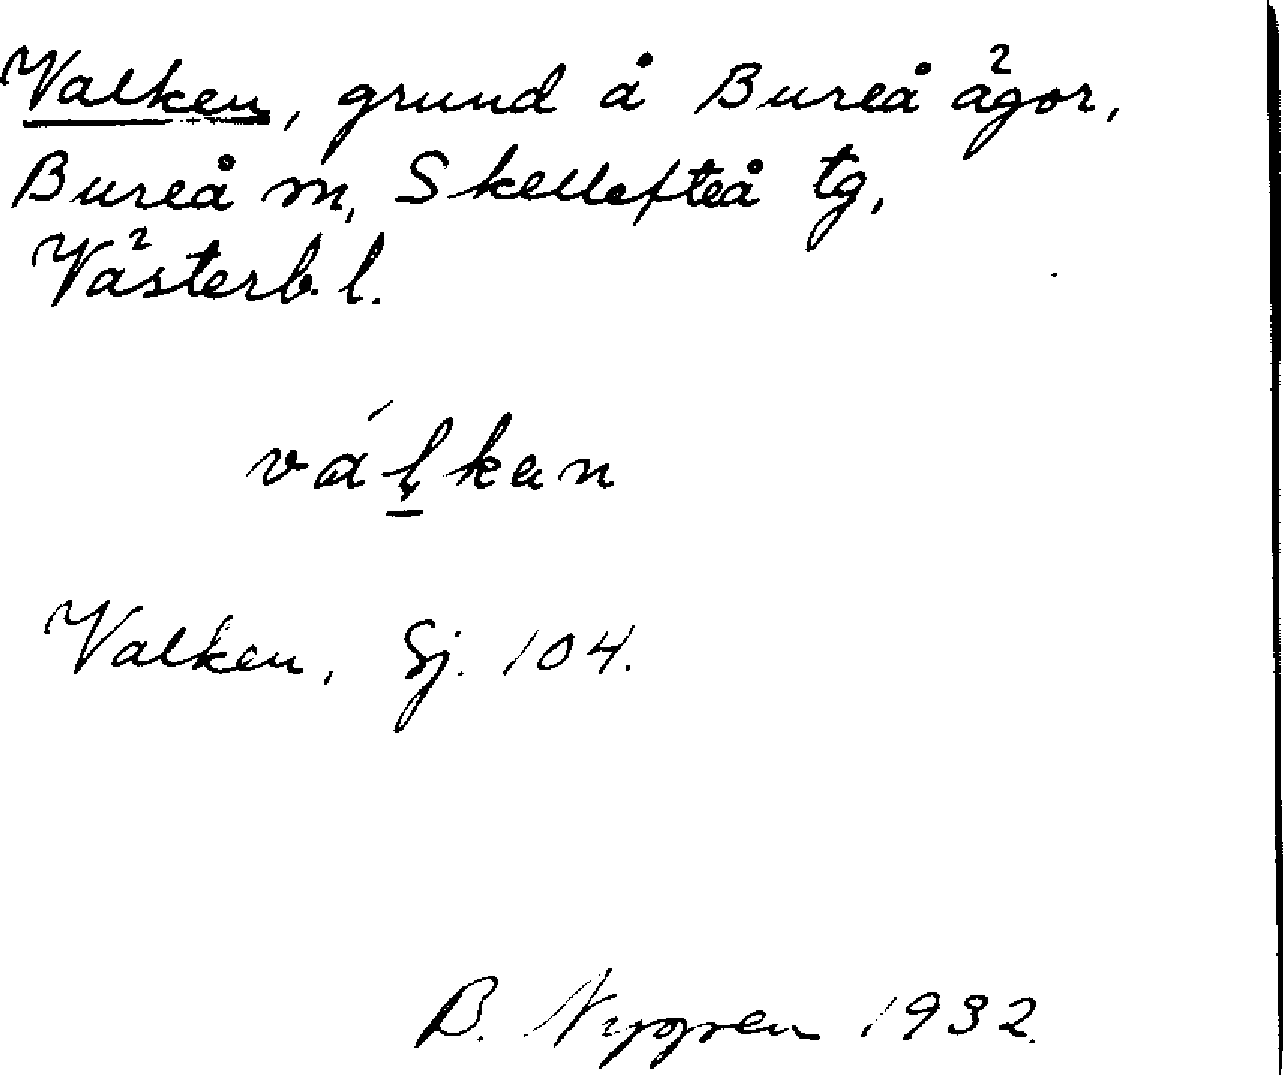 Valken, grund å Bureå ägor,
Bureå m, Skellefteå tg,
Västerb. l.
váļkan
Valken, Sj. 104.
B. Nygren 1932.